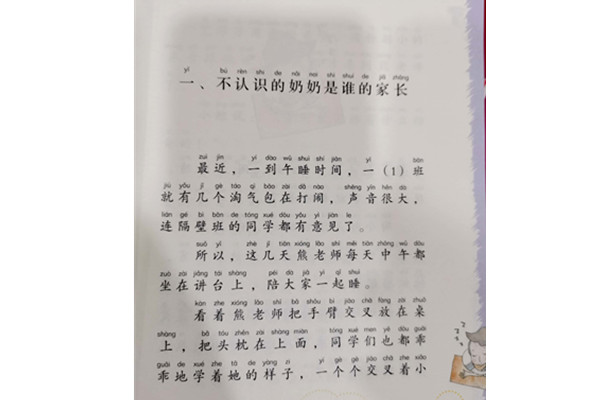 yī bú rèn shi de nǎi nai shì shuí de jiā zhǎng
一、不认识的奶奶是谁的家长
zuì jìn yí dào wǔ shuì shí jiān yī bān
最近，一到午睡时间，一（1）班
jiù yǒu jǐ gè táo qì bāo zài dǎ nào shēng yīn hěn dà
就有几个淘气包在打闹，声音很大，
lián gé bì bān de tóng xué dōu yǒu yì jiàn le
连隔壁班的同学都有意见了。
suǒ yǐ zhè jǐ tiān xióng lǎo shī měi tiān zhōng wǔ dōu
所以，这几天熊老师每天中午都
zuò zài jiǎng tái shàng péi dà jiā yì qǐ shuì
坐在讲台上，陪大家一起睡。
kàn zhe xióng lǎo shī bǎ shǒu bì jiāo chā fàng zài zhuō
看着熊老师把手臂交叉放在桌
shàng bǎ tóu zhěn zài shàng miàn tóng xué men yě dōu guāi
上，把头枕在上面，同学们也都乖
guāi de xué zhe tā de yàng zi yí gè gè jiāo chā zhe xiǎo
乖地学着她的样子，一个个交叉着小